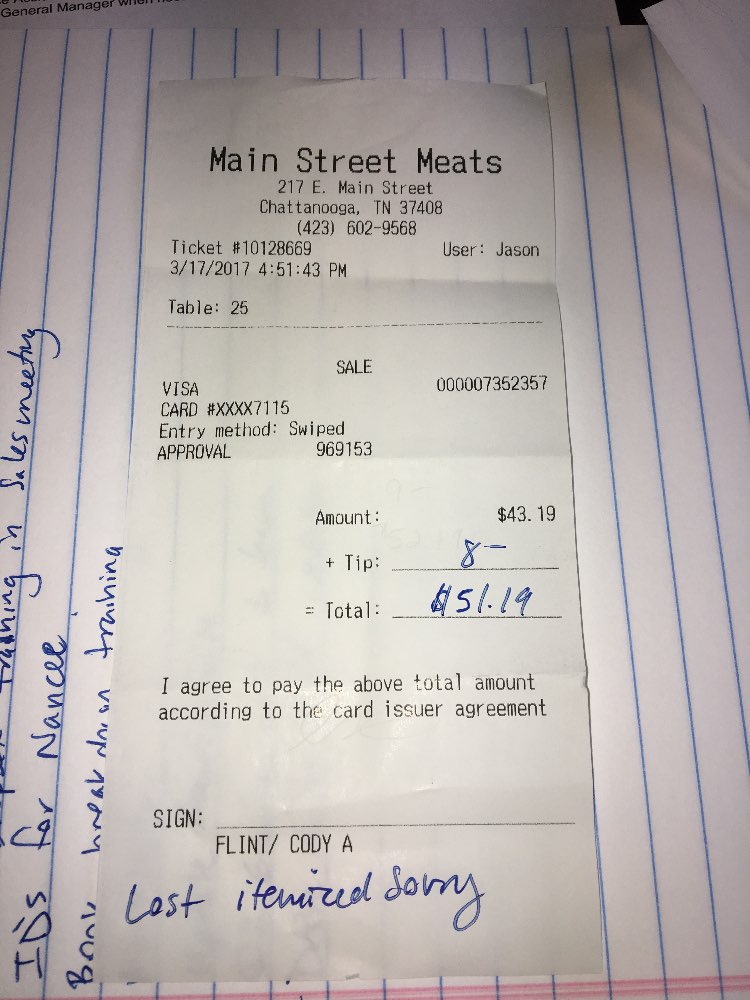 General Manager when
Main Street Meats
217 E. Main Street
Chattanooga, TN 37408
(423) 602-9568
Ticket #10128669 User: Jason
3/17/2017 4:51:43 PM
Table: 25
SALE
VISA 000007352357
CARD #XXXX7115
Entry method: Swiped
APPROVAL 969153
Amount: $43.19
+ Tip: 8—
= Total: $51.19
I agree to pay the above total amount
according to the card issuer agreement
SIGN:
FLINT/ CODY A
Lost itemized Sorry
training in Sales meeting
IDs for Nancee
Book break down training